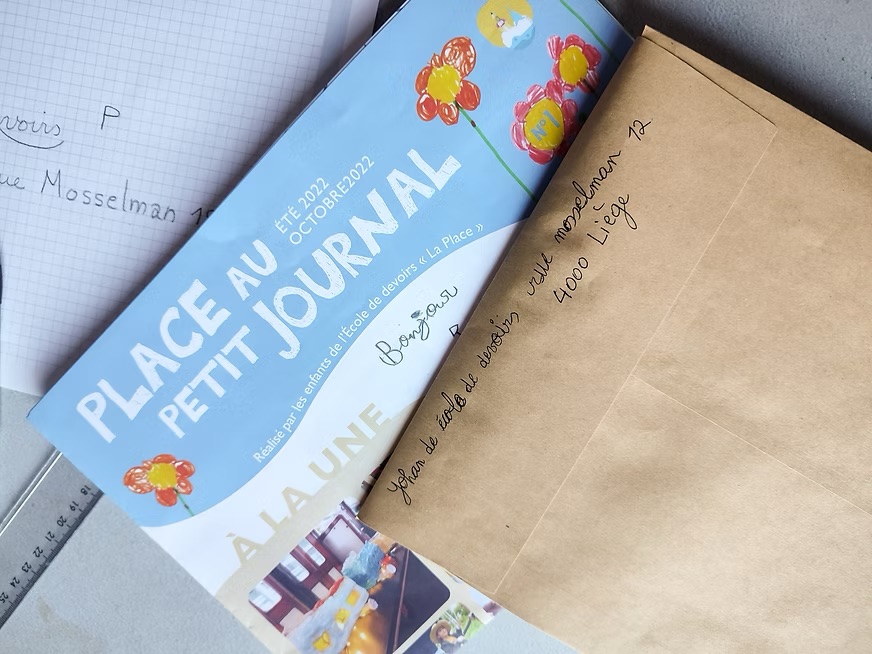 voirs P
ue Mosselman 1
N°1
ÉTÉ 2022
OCTOBRE 2022
PLACE AU
PETIT JOURNAL
Réalisé par les enfants de l'École de devoirs « La Place »
Bonjour
À LA UNE
Yohan de école de devoirs, rue mosselman 12
4000 Liège
18
19
20
21
22
23
24
25